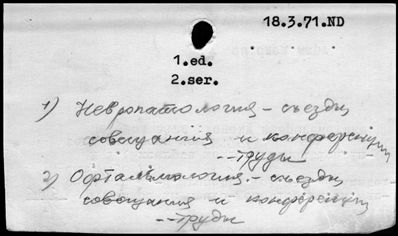 18.3.71.ND
1.ed.
2.ser.
1) Невропатология – съезды,
совещания и конференции
-- труды
2) Офтальмология. – съезды,
совещания и конференции
-- труды